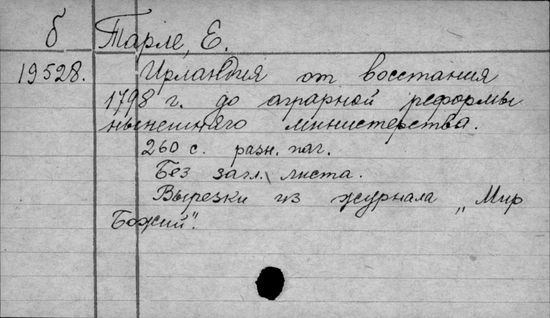 б Тарле, Е.
19528. Ирландия от восстания
1798 г. до аграрной реформы
нынешняго министерства.
260 с. разн. паг.
Без загл. листа.
Вырезки из журнала „Мир
Божий".